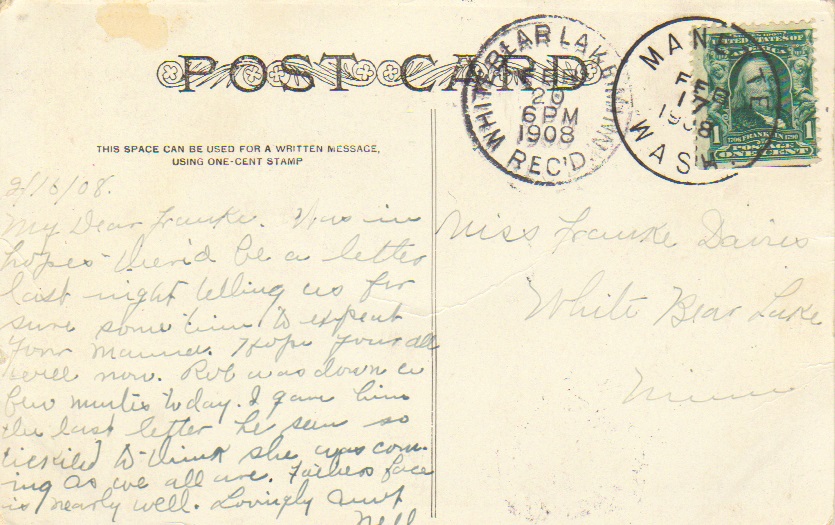 POST CARD
WHITE BEAR LAKE
FEB
20
6 PM
1908
REC'D.
MINN
MANETTE
FEB
17
1908
WASH
UNITED STATES OF
AMERICA
1 1
1706 FRANKLIN 1790
POSTAGE
ONE CENT
THIS SPACE CAN BE USED FOR A WRITTEN MESSAGE,
USING ONE-CENT STAMP
2/16/08.
My Dear Franke. Was in
hopes there'd be a letter
last night telling us for
sure some time to expect
your Mamma. Hope your all
well now. Rob was down a
few mintes today. I gave him
the last letter he seem so
tickiled to think she was com-
ing as we all are. Fathers face
is nearly well. Lovingly Aunt
Nell
Miss Franke Davies
White Bear Lake
Minn